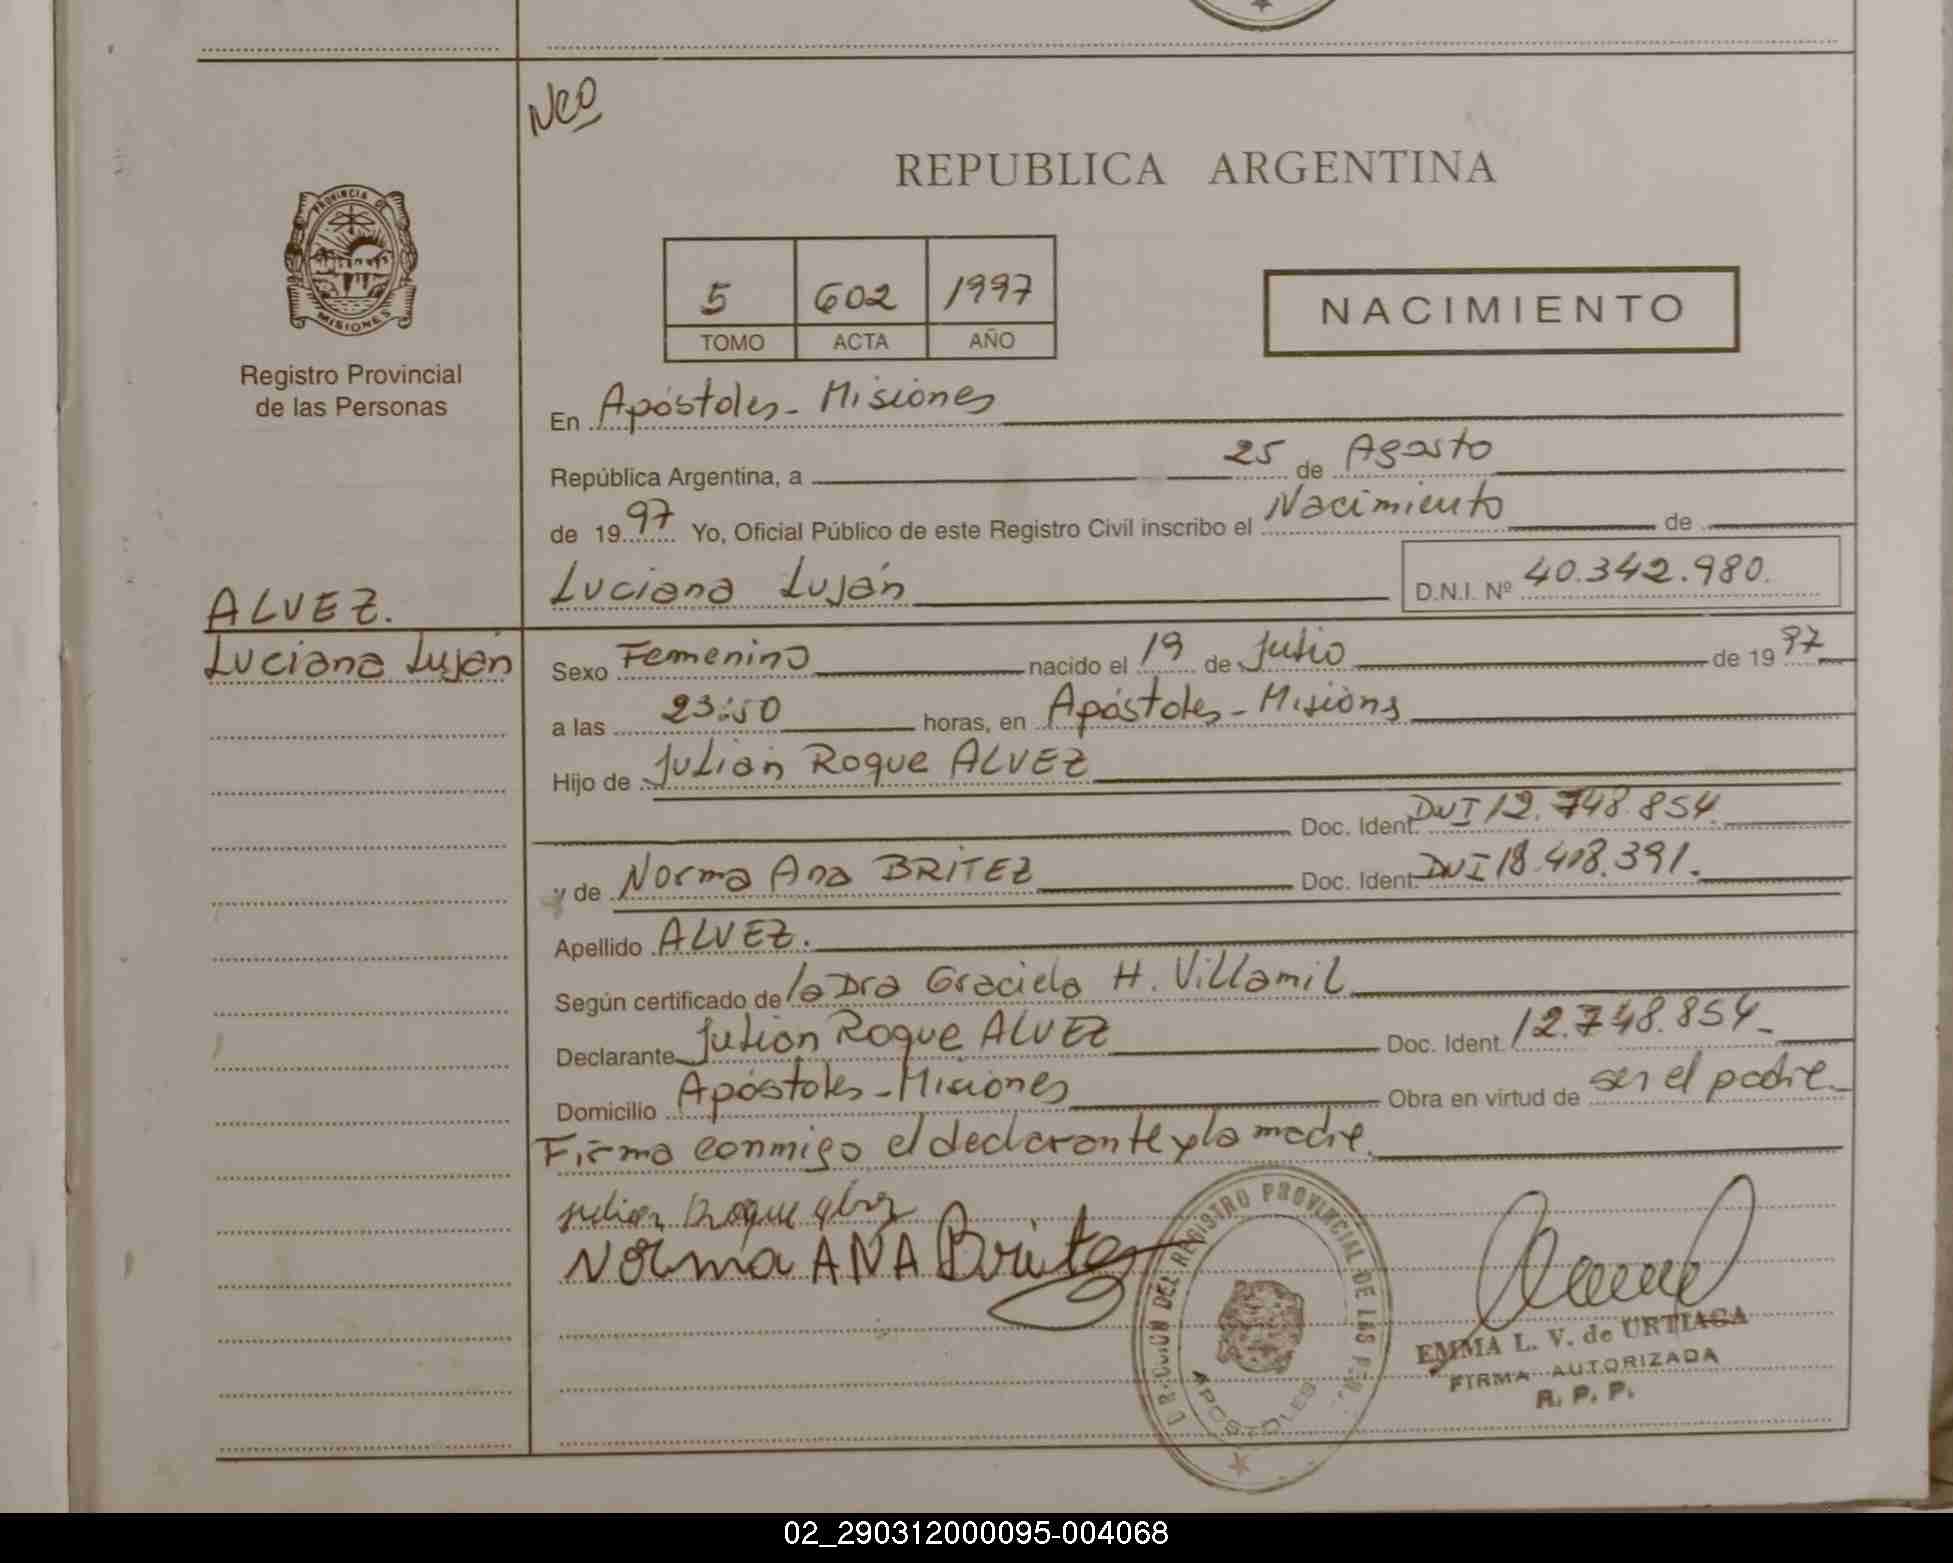 Nco
PROVINCIA DE
MISIONES
Registro Provincial
de las Personas
REPUBLICA ARGENTINA
5 602 1997
TOMO ACTA AÑO
NACIMIENTO
En Apóstoles - Misiones
República Argentina, a 25 de Agosto
de 1997 Yo, Oficial Público de este Registro Civil inscribo el Nacimiento de
Luciana Luján D.N.I. Nº 40.342.980.
ALVEZ.
Luciana Luján
Sexo Femenino nacido el 19 de Julio de 1997
a las 23:50 horas, en Apóstoles - Misions
Hijo de Julián Roque ALVEZ
Doc. Ident. DNI 12.748.854.
y de Norma Ana BRITEZ Doc. Ident. DNI 18.418.391.
Apellido ALVEZ.
Según certificado de la Dra Graciela H. Villamil
Declarante Julián Roque ALVEZ Doc. Ident. 12.748.854.
Domicilio Apóstoles - Misiones Obra en virtud de ser el padre.
Firma conmigo el declarante y la madre.
Julian Roque alvez
Norma ANA Britez
DEL REGISTRO PROVINCIAL DE LAS PER.
APOSTOLES
EMMA L. V. de URTIAGA
FIRMA AUTORIZADA
R. P. P.
02_290312000095-004068